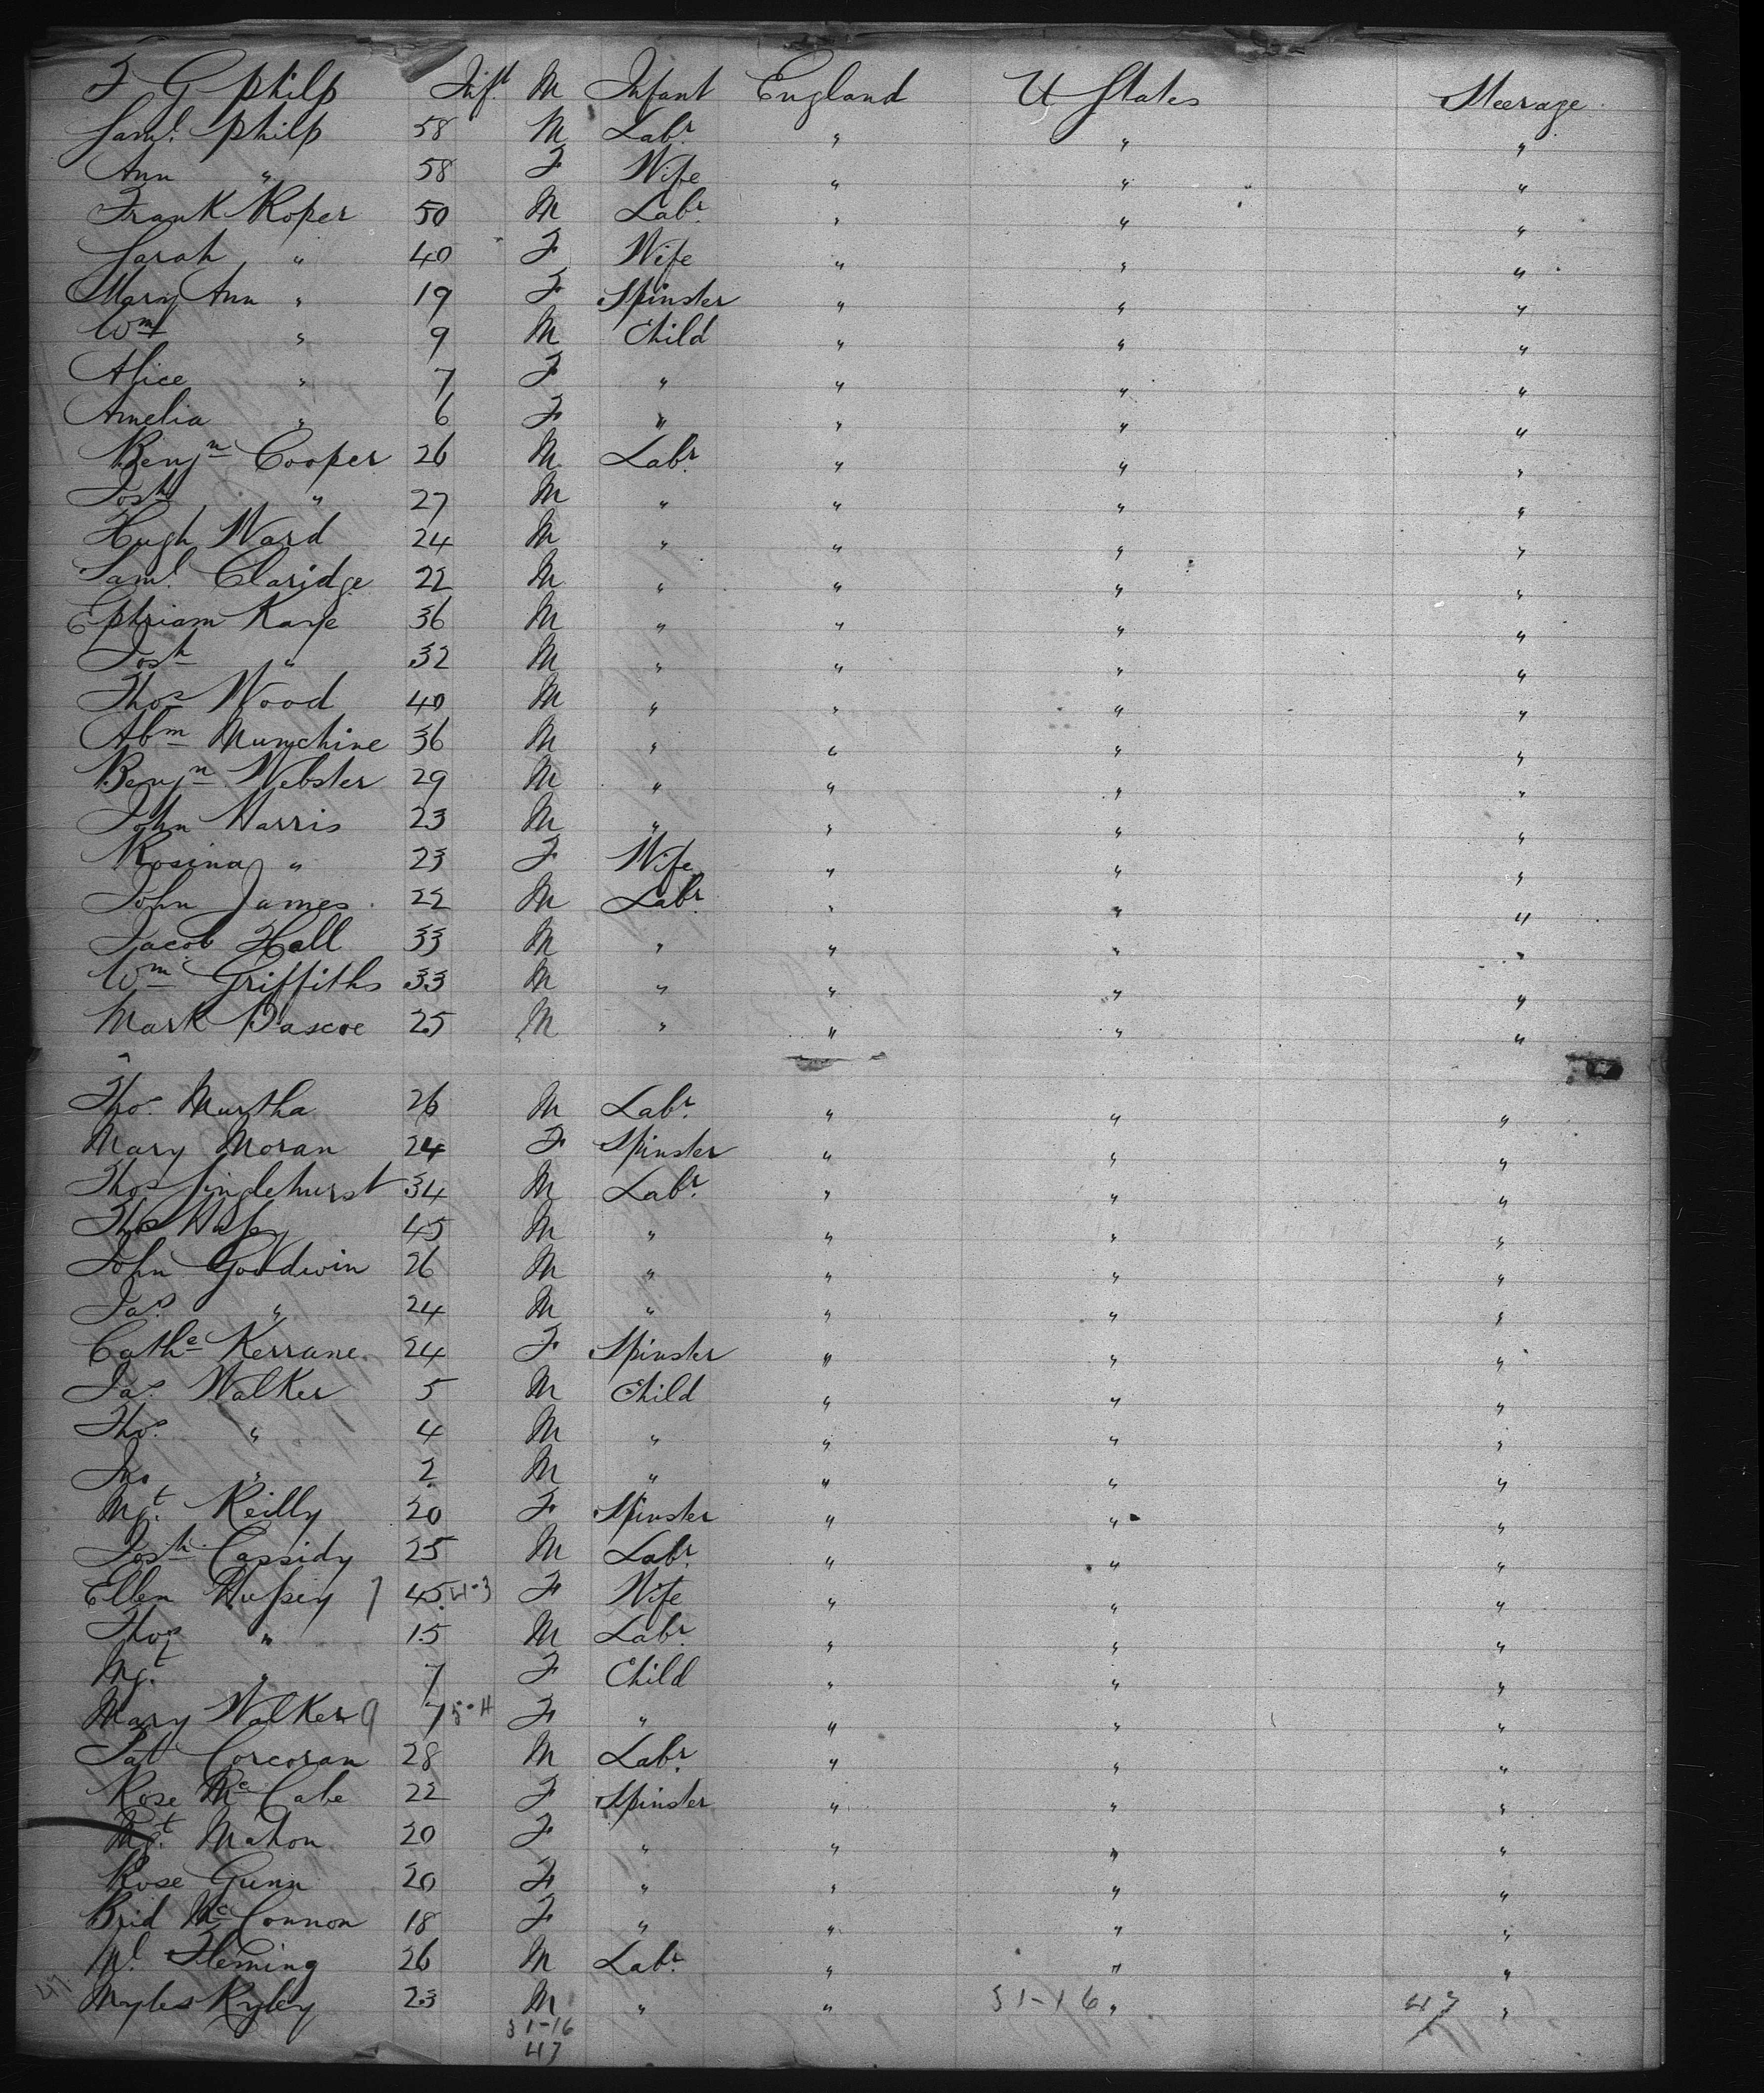 F G Philp Inft M Infant England U States Steerage
Saml. Philp 58 M Labr. " " "
Ann " 58 F Wife " " "
Frank Roper 50 M Labr. " " "
Sarah " 40 F Wife " " "
Mary Ann " 19 F Spinster " " "
Wm " 9 M Child " " "
Alice " 7 F " " " "
Amelia " 6 F " " " "
Benjn Cooper 26 M Labr. " " "
Josh " 27 M " " " "
Hugh Ward 24 M " " " "
Saml. Claridge 22 M " " " "
Ephriam Kaye 36 M " " " "
Josh " 32 M " " " "
Thos Wood 40 M " " " "
Abm Munchine 36 M " " " "
Benjn Webster 29 M " " " "
John Harris 23 M " " " "
Rosina " 23 F Wife " " "
John James 22 M Labr. " " "
Jacob Hall 33 M " " " "
Wm Griffiths 33 M " " " "
Mark Pascoe 25 M " " " "
Thos. Murtha 26 M Labr. " " "
Mary Moran 24 F Spinster " " "
Thos Singlehurst 34 M Labr. " " "
Thos 45 M " " " "
John Goodwin 26 M " " " "
Jas " 24 M " " " "
Cathe Kerrane 24 F Spinster " " "
Jas. Walker 5 M Child " " "
Thos. " 4 M " " " "
Jno " 2 M " " " "
Mgt. Reilly 20 F Spinster " " "
Josh Cassidy 25 M Labr. " " "
Ellen Hussey 45 4-3 F Wife " " "
Thos " 15 M Labr. " " "
Mgt. " 7 F Child " " "
Mary Walker 9 7 5-4 F " " " "
Pat Corcoran 28 M Labr. " " "
Rose McCabe 22 F Spinster " " "
Mgt. Mahon 20 F " " " "
Rose Gunn 20 F " " " "
Brid McConnon 18 F " " " "
Ml. Fleming 26 M Labr. " " "
47 Myles Ryley 23 M " " 31-16 " 47 "
31-16
47